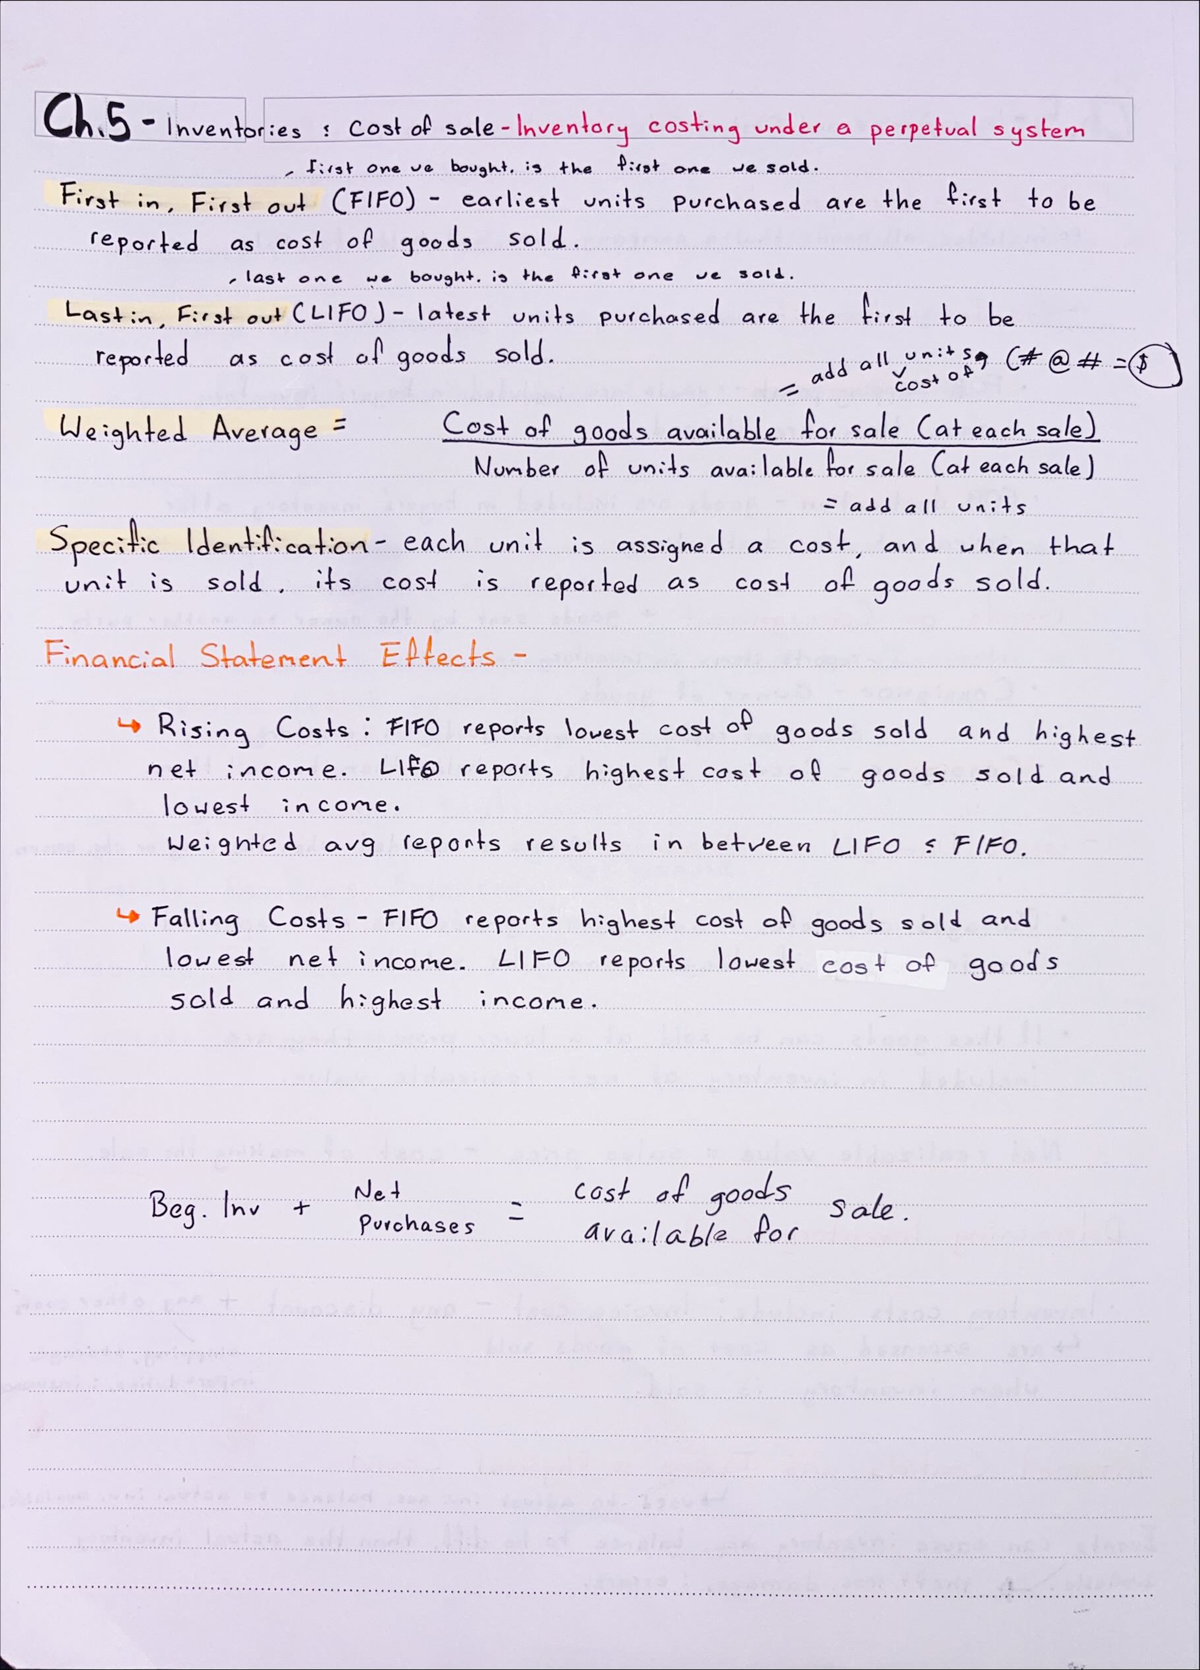 Ch.5 - Inventories & Cost of sale - Inventory costing under a perpetual system
first one we bought, is the first one we sold.
First in, First out (FIFO) - earliest units purchased are the first to be
reported as cost of goods sold.
last one we bought, is the first one we sold.
Last in, First out (LIFO) - latest units purchased are the first to be
reported as cost of goods sold.
= add all cost of units (# @ # = $)
Weighted Average = Cost of goods available for sale (at each sale)
Number of units available for sale (at each sale)
= add all units
Specific Identification - each unit is assigned a cost, and when that
unit is sold, its cost is reported as cost of goods sold.
Financial Statement Effects -
↳ Rising Costs: FIFO reports lowest cost of goods sold and highest
net income. LIFO reports highest cost of goods sold and
lowest income.
Weighted avg reports results in between LIFO & FIFO.
↳ Falling Costs - FIFO reports highest cost of goods sold and
lowest net income. LIFO reports lowest cost of goods
sold and highest income.
Beg. Inv + Net Purchases = cost of goods available for sale.